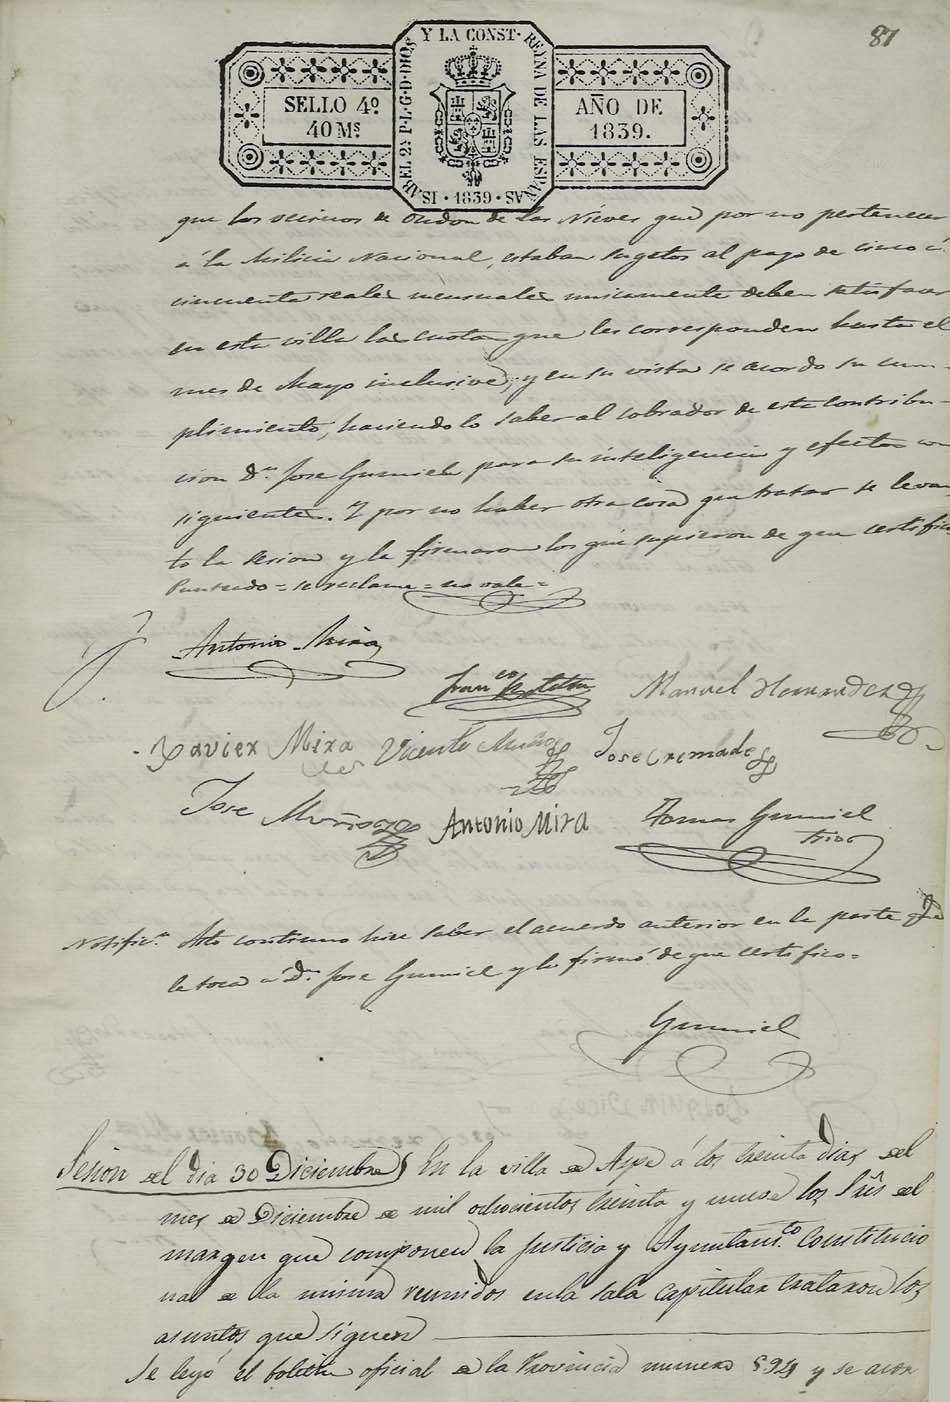 87
Y LA CONST. REYNA DE LAS ESPAÑAS · 1839 · ISABEL 2ª P.L.G.D.DIOS
SELLO 4º
40 Mˢ
AÑO DE
1839.
que los vecinos de Hondon de las Nieves que por no pertenecer
á la Milicia Nacional, estaban sugetos al pago de cinco á
cincuenta reales mensuales unicamente deben satisfacer
en esta villa las cuotas que les corresponden hasta el
mes de Mayo inclusive; y en su vista se acordo su cum-
plimiento, haciendolo saber al cobrador de esta contribu-
cion Dⁿ. Jose Gumiel para su inteligencia y efectos con
siguientes. Y por no haber otra cosa que tratar se levan
to la sesion y la firmaron los que supieron de que certifico
Punteado = se reclame = no vale =
Antonio Mira
Franᶜᵒ
Manuel Hernandez
Xavier Mira
Vicente Muñoz
Jose Cremades
Jose Muñoz
Antonio Mira
Tomas Gumiel
Srio
Notificⁿ. Acto continuo hice saber el acuerdo anterior en la parte que
le toca á Dⁿ. Jose Gumiel y lo firmó de que certifico =
Gumiel
Sesion del dia 30 Diciembre } En la villa de Aspe á los treinta dias del
mes de Diciembre de mil ochocientos treinta y nueve los Srês del
margen que componen la Justicia y Ayuntamᵗᵒ. Constitucio
nal de la misma reunidos en la sala capitular trataron los
asuntos que siguen
Se leyó el boletin oficial de la Provincia numero 594 y se acor